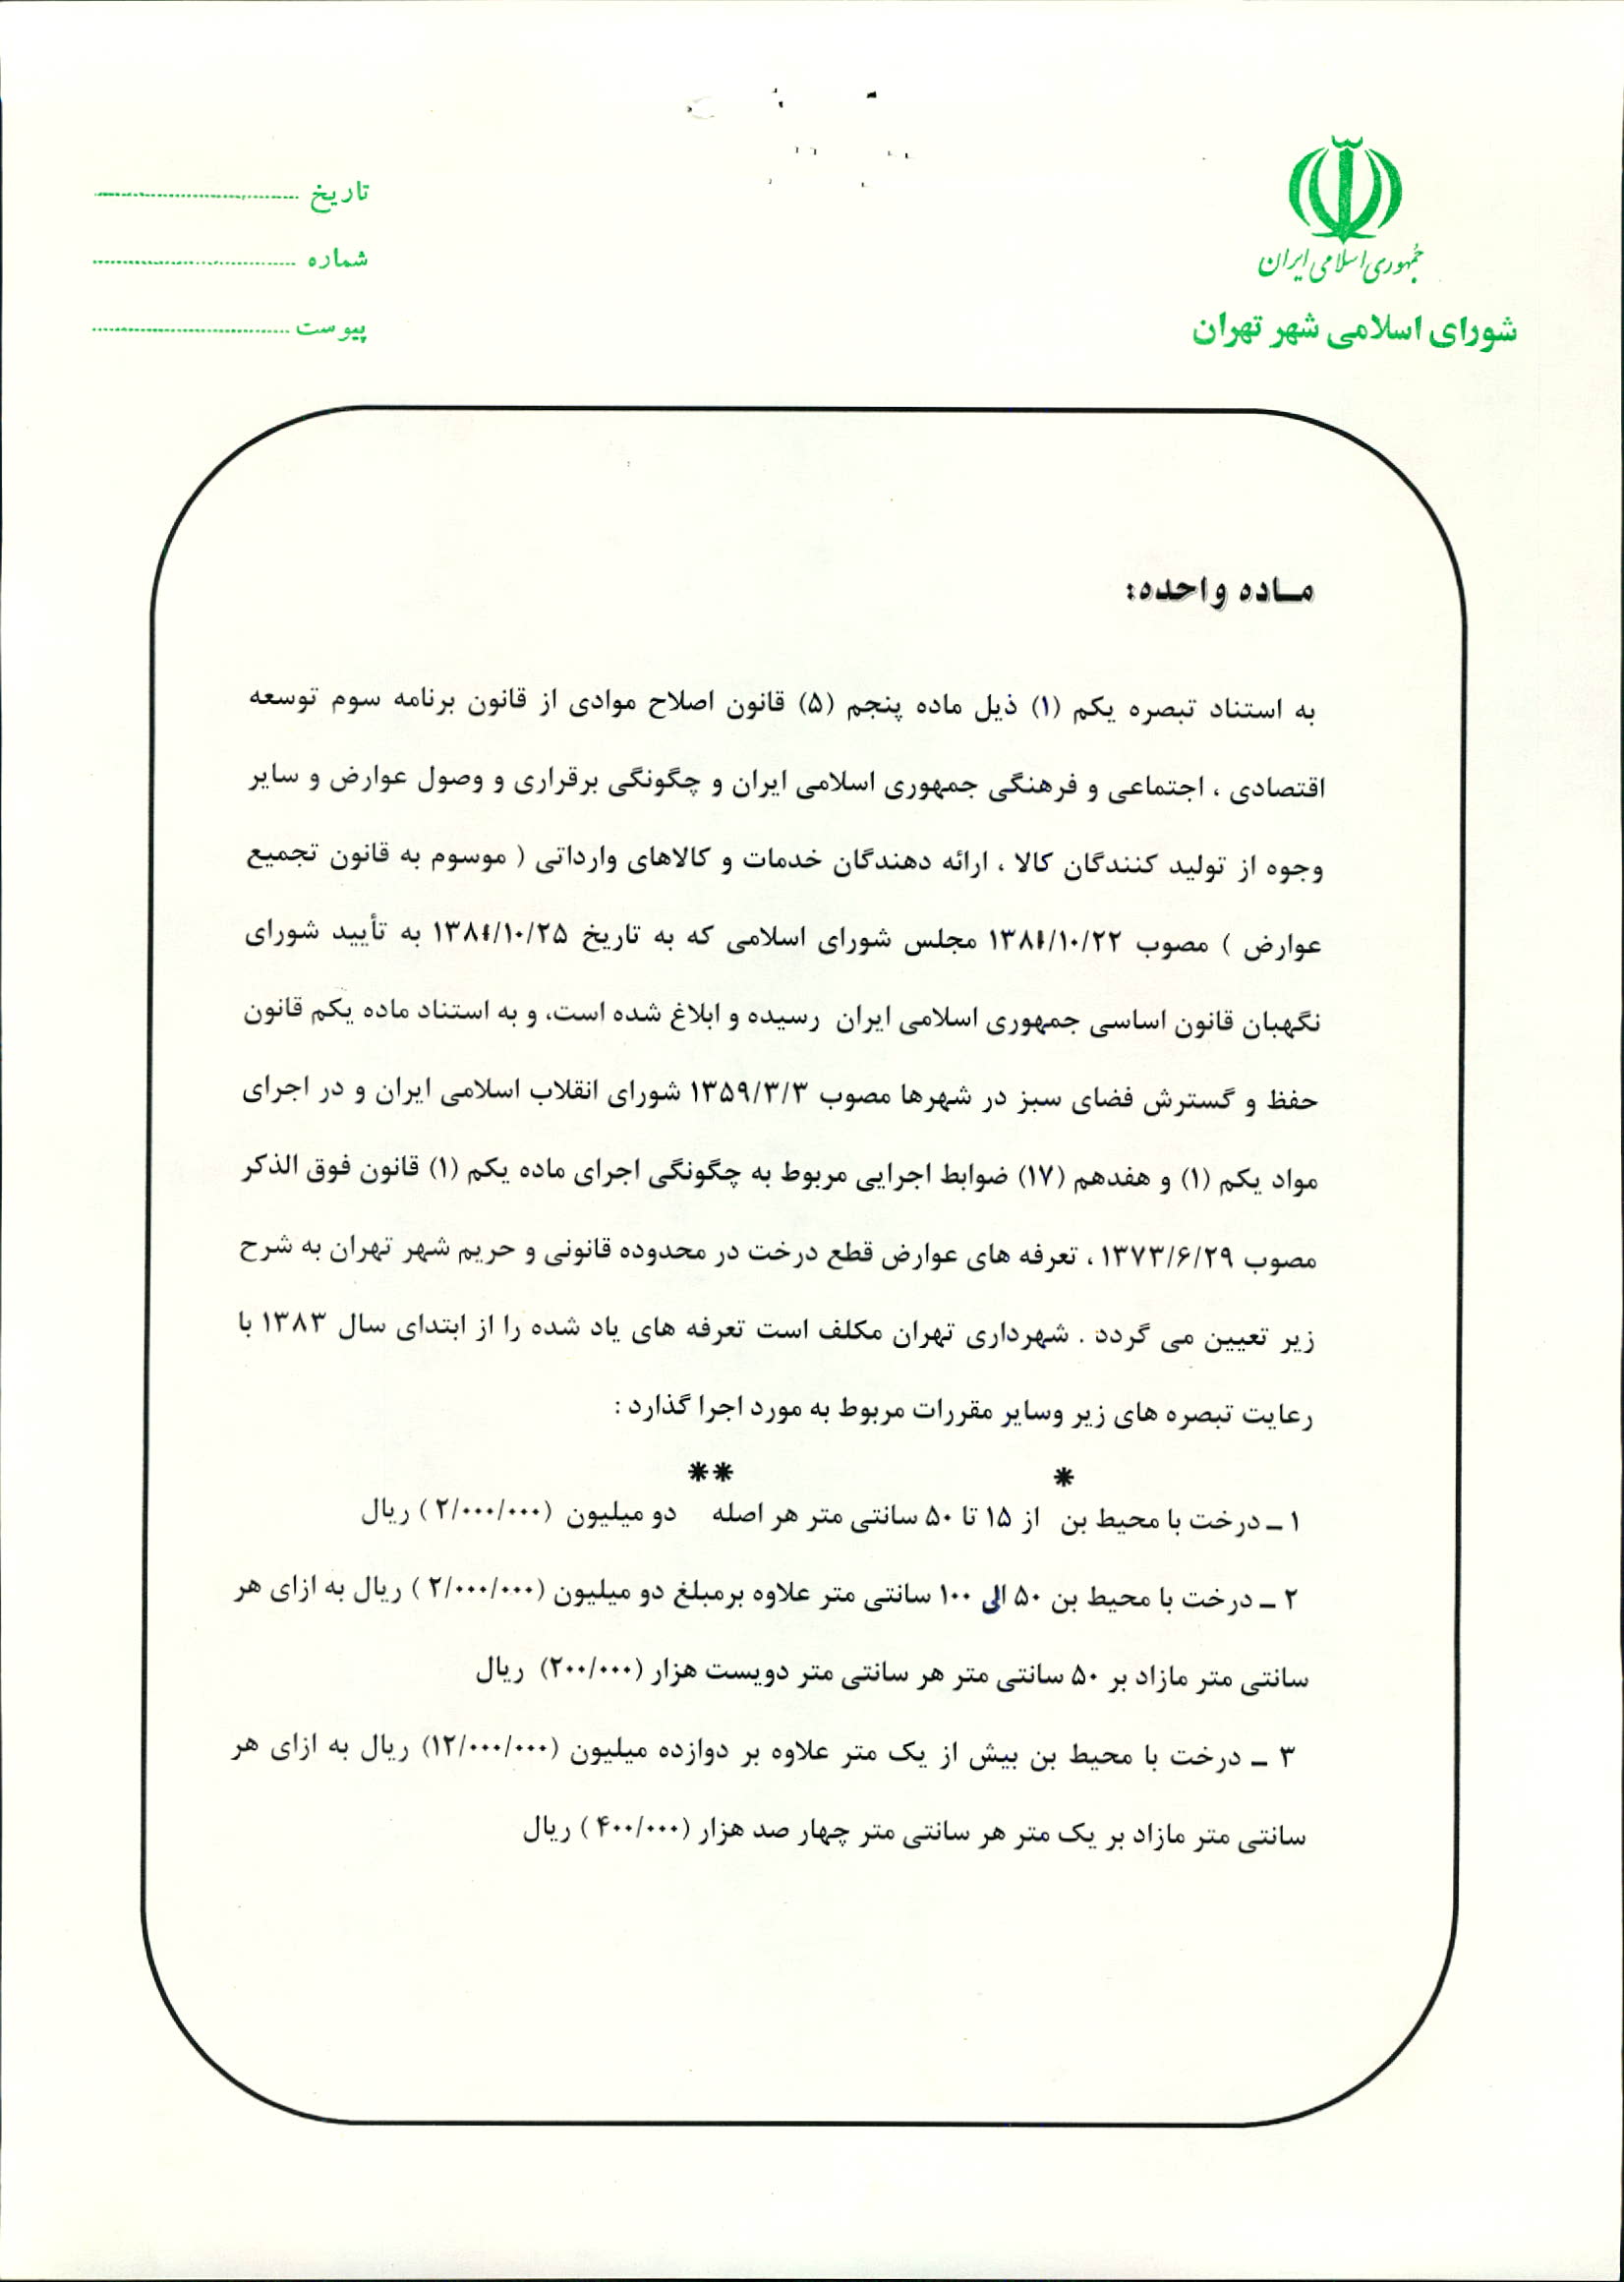 جمهوری اسلامی ایران
شورای اسلامی شهر تهران
تاریخ
شماره
پیوست
ماده واحده:
به استناد تبصره یکم (۱) ذیل ماده پنجم (۵) قانون اصلاح موادی از قانون برنامه سوم توسعه
اقتصادی ، اجتماعی و فرهنگی جمهوری اسلامی ایران و چگونگی برقراری و وصول عوارض و سایر
وجوه از تولید کنندگان کالا ، ارائه دهندگان خدمات و کالاهای وارداتی ( موسوم به قانون تجمیع
عوارض ) مصوب ۱۳۸۱/۱۰/۲۲ مجلس شورای اسلامی که به تاریخ ۱۳۸۱/۱۰/۲۵ به تأیید شورای
نگهبان قانون اساسی جمهوری اسلامی ایران رسیده و ابلاغ شده است، و به استناد ماده یکم قانون
حفظ و گسترش فضای سبز در شهرها مصوب ۱۳۵۹/۳/۳ شورای انقلاب اسلامی ایران و در اجرای
مواد یکم (۱) و هفدهم (۱۷) ضوابط اجرایی مربوط به چگونگی اجرای ماده یکم (۱) قانون فوق الذکر
مصوب ۱۳۷۳/۶/۲۹ ، تعرفه های عوارض قطع درخت در محدوده قانونی و حریم شهر تهران به شرح
زیر تعیین می گردد . شهرداری تهران مکلف است تعرفه های یاد شده را از ابتدای سال ۱۳۸۳ با
رعایت تبصره های زیر وسایر مقررات مربوط به مورد اجرا گذارد :
* **
۱ ـ درخت با محیط بن از ۱۵ تا ۵۰ سانتی متر هر اصله دو میلیون (۲/۰۰۰/۰۰۰ ) ریال
۲ ـ درخت با محیط بن ۵۰ الی ۱۰۰ سانتی متر علاوه برمبلغ دو میلیون (۲/۰۰۰/۰۰۰ ) ریال به ازای هر
سانتی متر مازاد بر ۵۰ سانتی متر هر سانتی متر دویست هزار (۲۰۰/۰۰۰) ریال
۳ ـ درخت با محیط بن بیش از یک متر علاوه بر دوازده میلیون (۱۲/۰۰۰/۰۰۰) ریال به ازای هر
سانتی متر مازاد بر یک متر هر سانتی متر چهار صد هزار (۴۰۰/۰۰۰ ) ریال